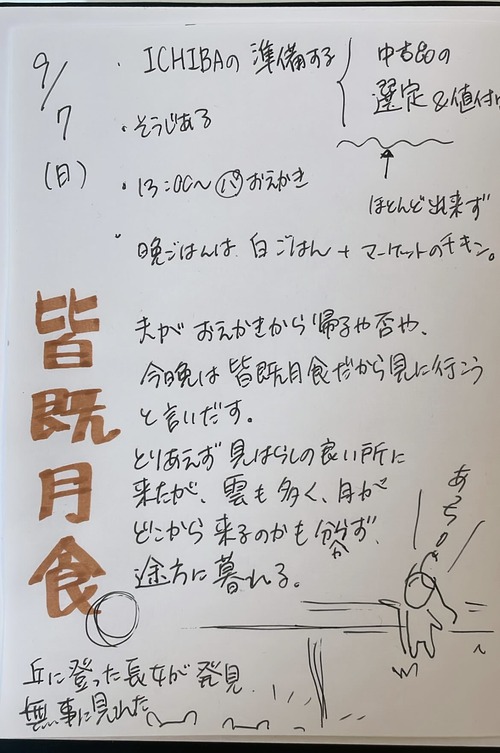 9/7
(日)
・ICHIBAの準備する
中古品の
選定&値付け
・そうじする
ほとんど出来ず
・13:00〜(パ)おえかき
・晩ごはんは 白ごはん + マーケットのチキン。
皆既月食
夫が おえかきから帰るや否や、
今晩は 皆既月食だから見に行こう
と言いだす。
とりあえず 見はらしの良い所に
来たが、雲も多く、月が
どこから来るのかも分からず、
途方に暮れる。
あっち!
丘に登った長女が発見
無事に見れた